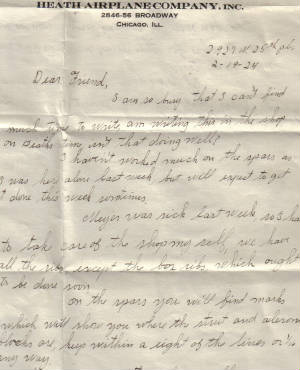 HEATH AIRPLANE COMPANY, INC.
2846-56 BROADWAY
CHICAGO, ILL.
2-19-24
Dear Friend,
I am so busy that I can't find
much time to write, am writing this in the shop
on Heaths time, isn't that doing well?
I haven't worked much on the spars as
I was here alone last week but will expect to get
done this week sometimes.
Meyer was sick last week, so I ha
to take care of the shop my self, we have
all the ribs except the box ribs which ought
to be done soon
on the spars you will find marks
which will show you where the strut and aileron
blocks are, keep within a
any way